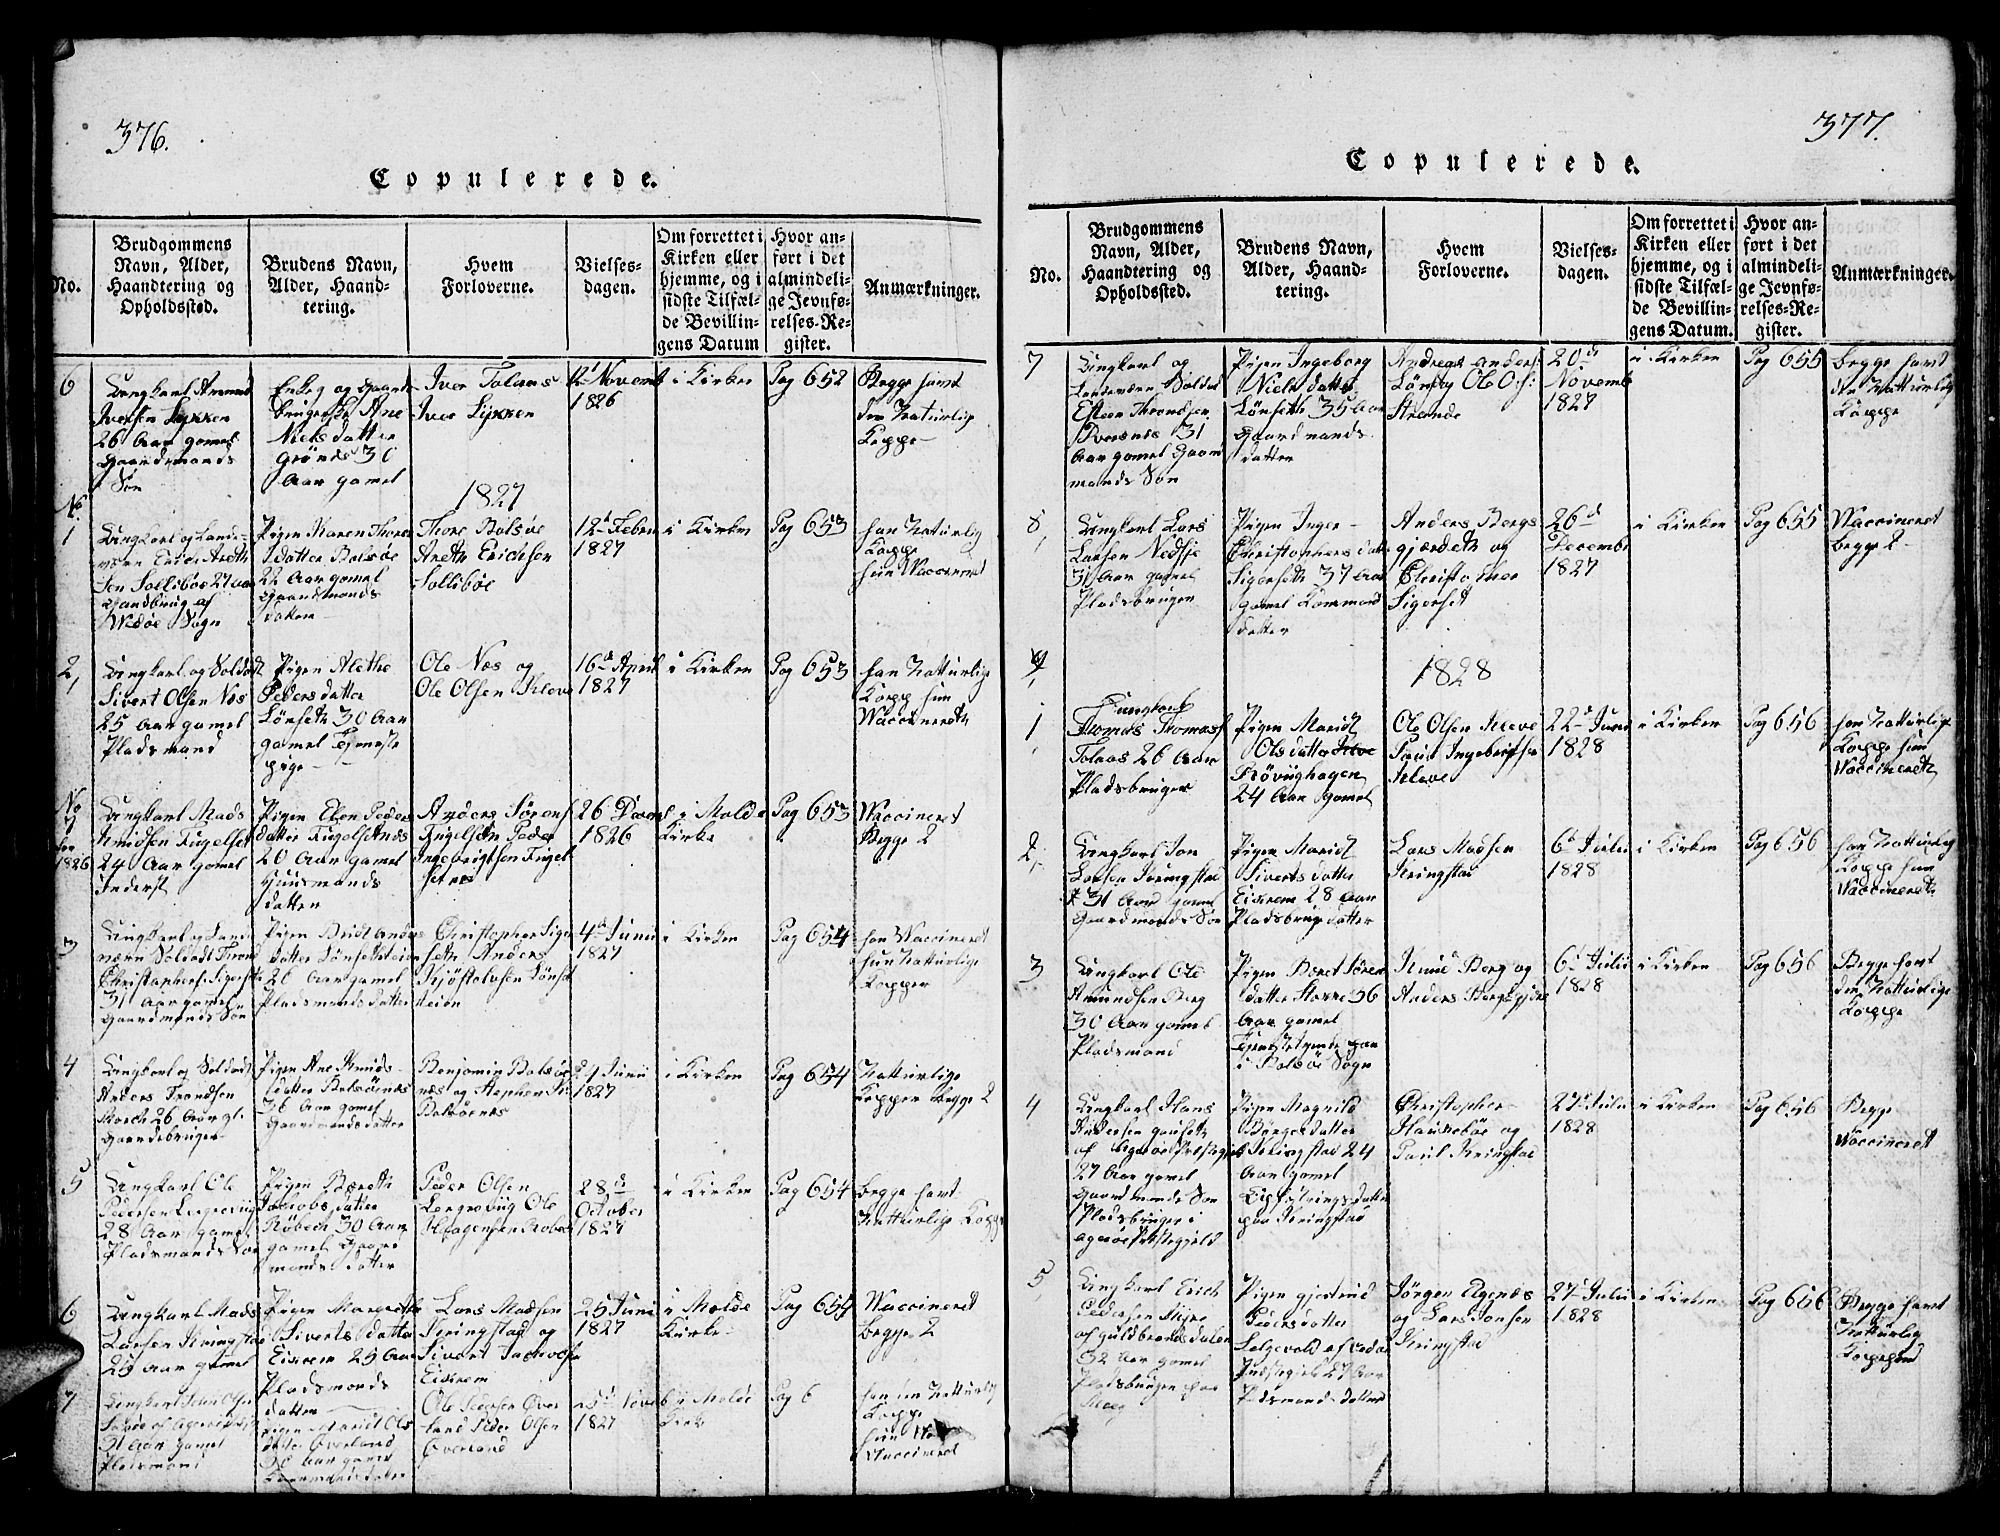 376.
Copulerede.
No.
Brudgommens
Navn, Alder,
Haandtering og
Opholdssted.
Brudens Navn,
Alder, Haand-
tering.
Hvem
Forloverne.
Vielses-
dagen.
Om forrettet i
Kirken eller
hjemme, og i
sidste Tilfæl-
de Bevillin-
gens Datum
Hvor an-
ført i det
almindeli-
ge Jevnfø-
relses-Re-
gister.
Anmærkninger.
6
Ungkarl
Iversen Lykken
26 Aar gamel
Gaardmands
Søn
Enke og Gaard-
Ane
Niels datter
Grønds 30
Aar gamel
Iver Tolaas
Iver Lykken
Novemb
1826
i Kirken
Pag 652
Begge havt
den Naturlig
Koppe
1827
No
1
Ungkarl og Lande-
værn
Sollisbøe 27 aar
af
Wedøe Sogn
Pigen Karen Thores
datter Bolsøe
22 Aar gamel
Gaardmands
datter
Thore Bolsøe
Areth Erichsen
Sollisbøe
12 Febru
1827
i Kirken
Pag 653
han Naturlig
Koppe
hun Waccineret
2,
Ungkarl og Soldat
Sivert Olsen Næs
25 Aar gamel
Pladsmand
Pigen Alethe
Peders datter
Lønseth 30 Aar
gamel Tjeneste
pige
Ole Næs og
Ole Olsen Kleve
16 April
1827
i Kirken
Pag 653
han Naturlige
Kopp hun
Waccinereth
No
7
for
1826
Ungkarl Mads
Knudsen Fugelset
24 Aar gamel
Inderst
Pigen Elen Peders
datter Fugelsetnæs
20 Aar gamel
Huusmands
datter
Anders Sørens
Engelsen Peder
Ingebrigtsen Fugel-
setnæs
26 Decemb
1826
i Molde
Kirke
Pag 653
Waccineret
Begge 2
3
Ungkarl og Land
værn Soldat Trond
Christophers. Sigerseth
31 Aar gamel
Gaardmands Søn
Pigen Brit Anders
datter Lønsethteien
26 Aar gamel
Pladsmands datter
Christopher Siger
seth Anders
Kjøstelsen Lønset
teien
4 Juni
1827
i Kirken
Pag 654
han Waccineret
hun Naturlige
Kopper
4
Ungkarl og Soldat
Anders Trondsen
26 Aar gl.
Gaardbruger
Pigen Ane Knuds-
datter Bolsøenæs
36 Aar gamel
Gaardmandsdatter
Benjamin Bolsøe
næs og
Bolsøenæs
24 Junii
1827
i Kirken
Pag 654
Naturlige
Kopper begge 2
5
Ungkarl Ole
Pedersen Lergroviig
28 Aar gamel
Pladsmands Søn
Pigen Bereth
Jacobs datter
Røbech 30 Aar
gamel Gaard
mands datter
Peder Olsen
Lergroviig Ole
28
October
1827
i Kirken
Pag 654
begge havt
Naturlige Kopp
6
Ungkarl Mads
Larsen Kringstad
25 Aar gamel
Pigen Margrethe
Siverts datter
Eikrem 25 Aar
Pladsmands
datter
Lars Madsen
Kringstad og
Sivert
Eikrem
25 Juni
1827
i Molde
Kirke
Pag 654
Waccineret
begge 2
7
Ungkarl
31 Aar gamel
Pladsmand
Pigen Marit Ols
datter Overland
30 Aar gamel
Ole Pedersen Over
land Peder Olsen
Overland
1827
i Molde
Kirk
Pag 6
Naturlig
Koppe
hun
Waccineret
377.
Copulerede.
No.
Brudgommens
Navn, Alder,
Haandtering og
Opholdssted.
Brudens Navn,
Alder, Haand-
tering.
Hvem
Forloverne.
Vielses-
dagen.
Om forrettet i
Kirken eller
hjemme, og i
sidste Tilfæl-
de Bevillin-
gens Datum.
Hvor an-
ført i det
almindeli-
ge Jevnfø-
relses-Re-
gister.
Anmærkninger.
7
Ungkarl og
Landeværn Soldat
Esten Throndsen
31
Aar gamel Gaard
mands Søn
Pigen Ingeborg
Niels datter
Lønseth 35 Aar
Gaardmands
datter
Andreas Anders:
Lønset Ole Ols:
Strande
20
Novemb
1827
i Kirken
Pag 655
begge havt
den Naturlig
Koppe
8,
Ungkarl Lars
Larsen Nedsje
31 Aar gamel
Pladsbruger
Pigen Inger
Christophers datter
Sigerseth 37 Aar
gamel
datter
Anders Bergs
gjærdeth og
Christopher
Sigerset
26
Decembr
1827
i Kirken
Pag 655
Waccineret
begge 2
1828
1,
Ungkarl
Thomas Thomass
Tolaas 26 Aar
Pladsbruger
Pigen Marit
Olsdatter
Prøviighagen
24 Aar gamel
Ole Olsen Kleve
Ingebrigtsen
Kleve
22 Juni
1828
i Kirken
Pag 656
han Naturlige
Koppe hun
Waccinereth
2,
Ungkarl Jon
Larsen Kringstad
31 Aar gamel
Gaardmands Søn
Pigen Marit
Siverts datter
Eikrem 28 Aar
Pladsbrug datter
Lars Madsen
Kringstad
6 Julii
1828
i Kirken
Pag 656
han Naturlig
Kopp hun
Waccinereth
3
Ungkarl Ole
Amundsen Berg
30 Aar gamel
Pladsmand
Pigen Beret Søren
datter 36
Aar gamel
paa
i Bolsøe Sogn
Knud Berg og
Anders Bergsgjerde
6 Julii
1828
i Kirken
Pag 656
Begge havt
den Naturlige
Koppe
4
Ungkarl Hans
Andersen
af Agerøe Præstegjeld
27 Aar gamel
Gaardmands Søn
Pladsbruger i
agerøe Præstegjeld
Pigen Magnild
Børgesdatter
Kringstad 24
Aar gamel
datter
paa Kringstad
Christopher
Haukebøe og
Paul Kringstad
27 Julii
1828
i Kirken
Pag 656
Begge
Waccineret
5,
Ungkarl Erich
Pedersen
af guldbrandsdalen
32 Aar gamel
Pladsbruger paa
Pigen gjertrud
Pedersdatter
af
Præstegjeld 27 Aar
Pladsmands datter
Jørgen Elgenæs
og Lars Jonsen
Kringstad
27 Julii
1828
i Kirken
Pag 656
Begge havt
Naturlig